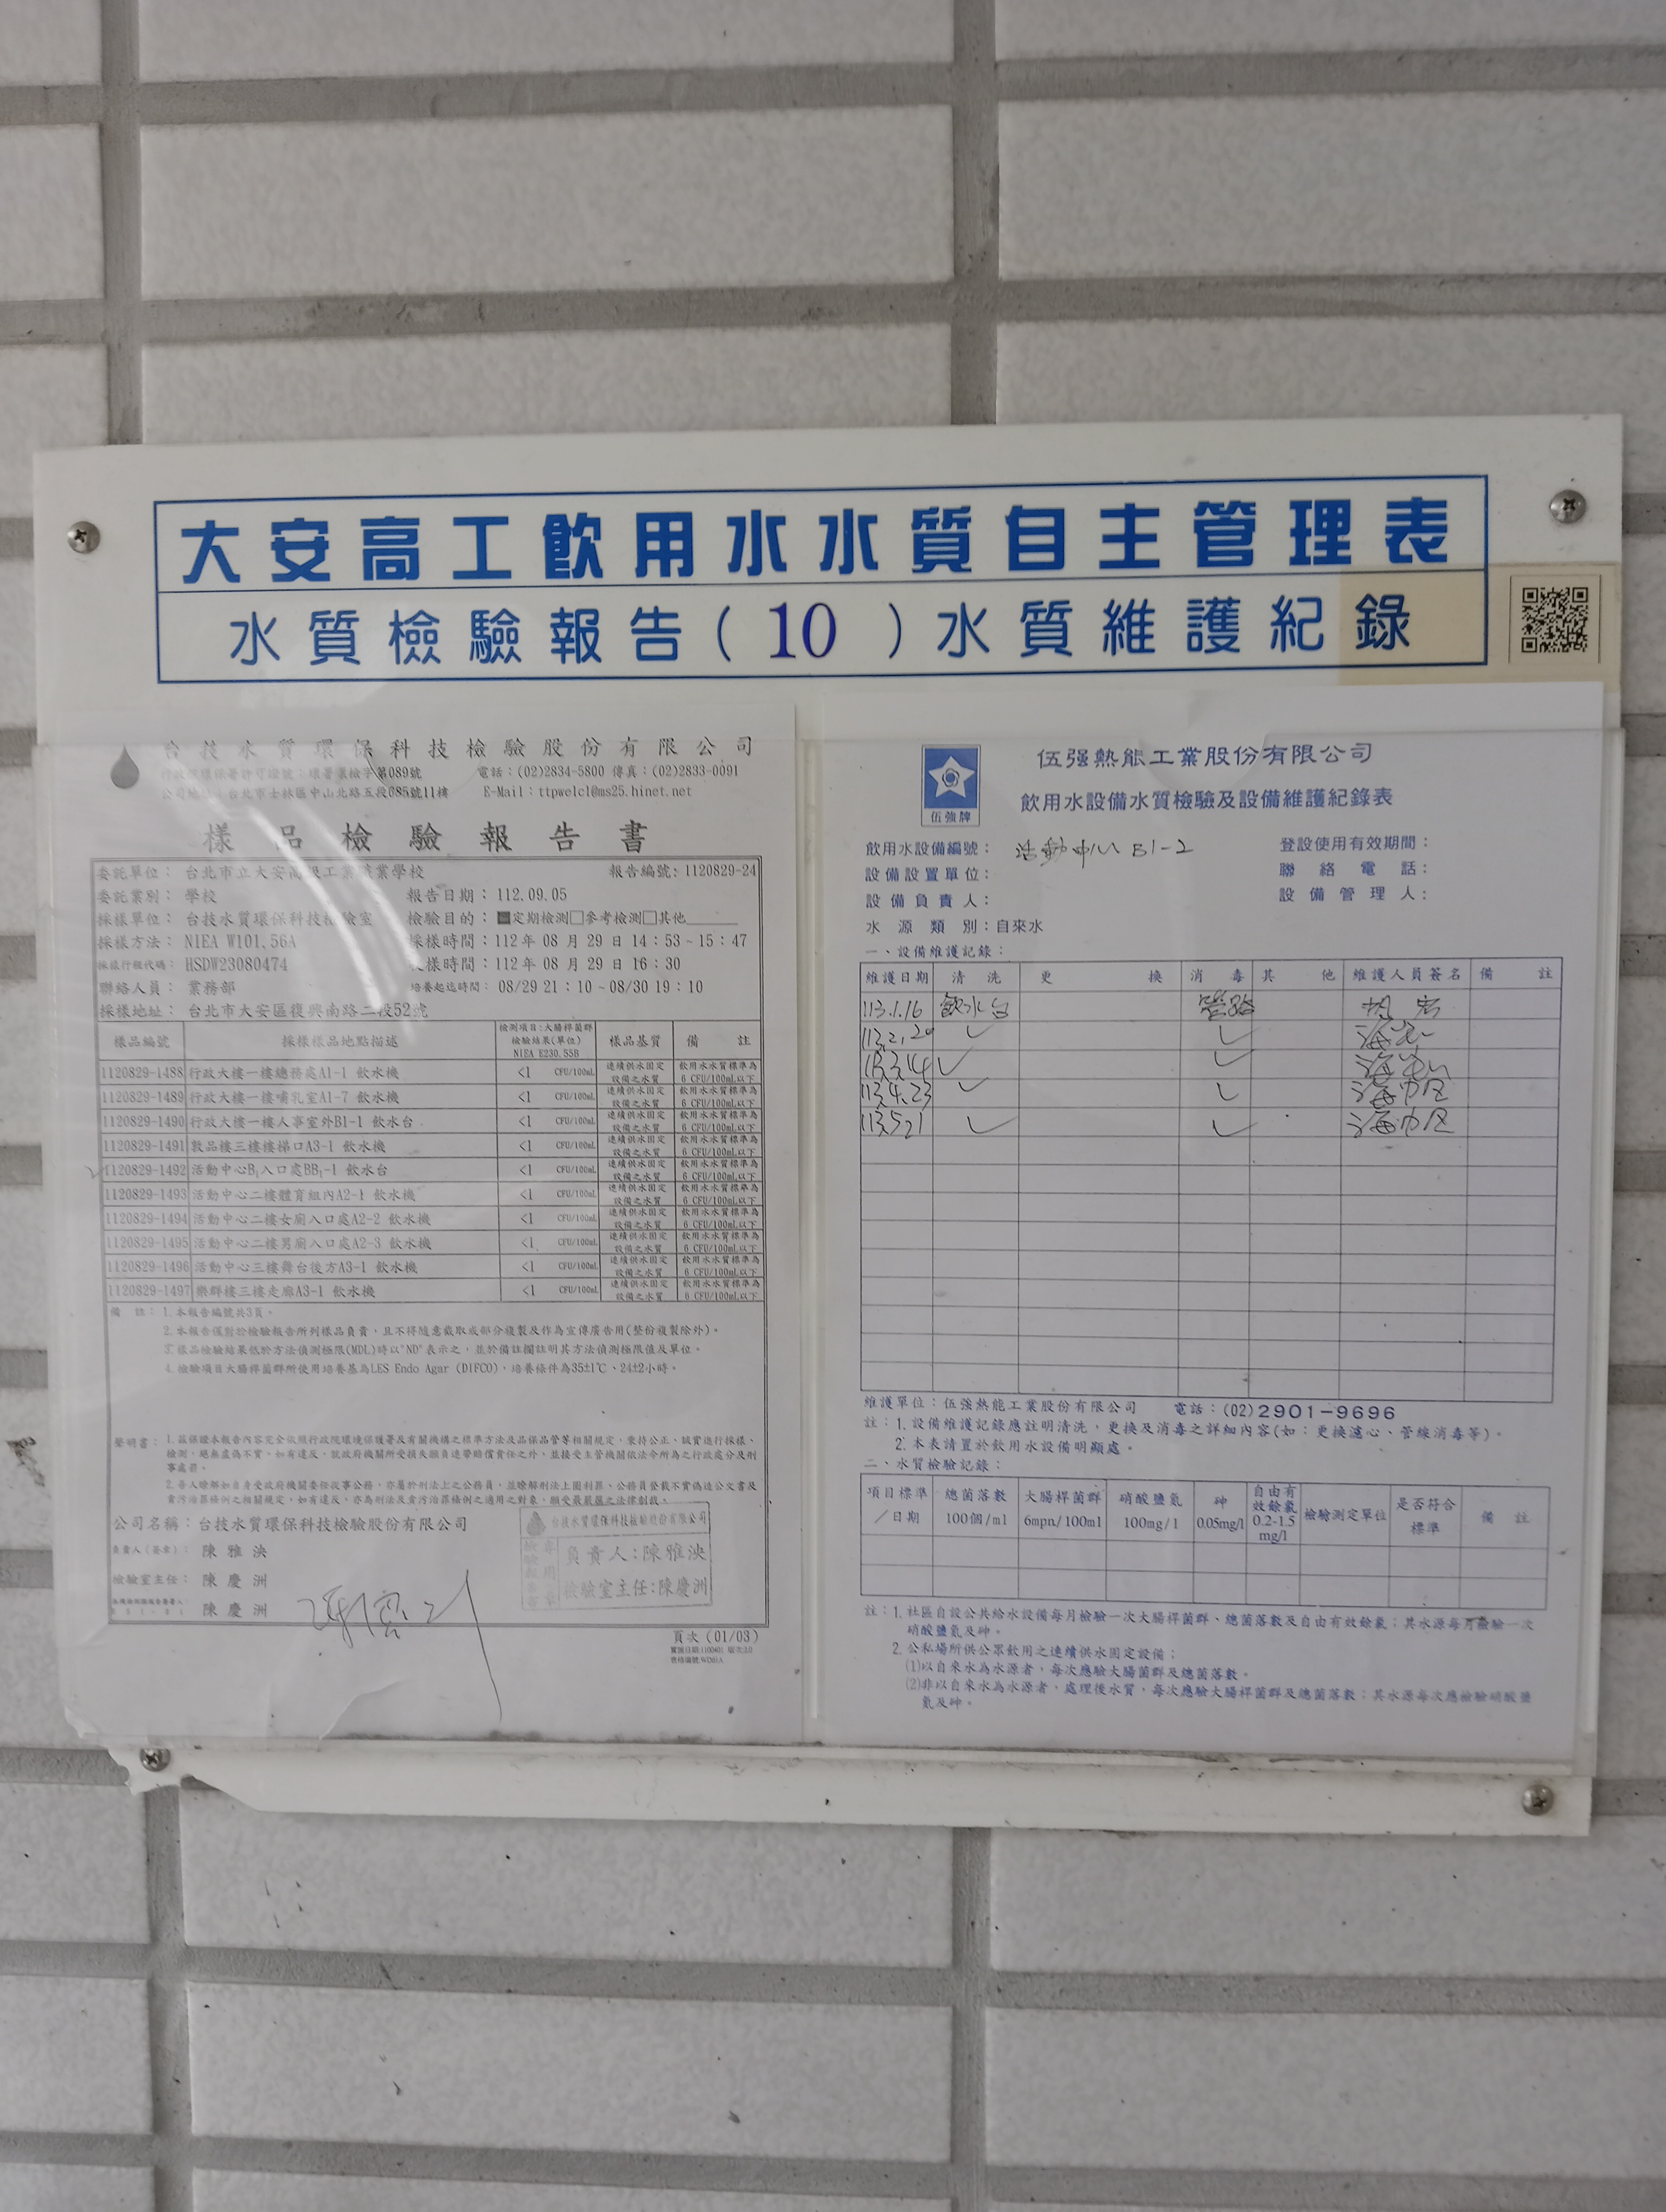 大安高工飲用水水質自主管理表
水質檢驗報告(10)水質維護紀錄
台技水質環保科技檢驗股份有限公司
行政院環保署許可證號:環署環檢字第089號 電話:(02)2834-5800 傳真:(02)2833-0091
公司地址:台北市士林區中山北路五段685號11樓 E-Mail:ttpwelcl@ms25.hinet.net
樣品檢驗報告書
委託單位: 台北市立大安高級工業職業學校 報告編號:1120829-24
委託業別: 學校 報告日期:112.09.05
採樣單位: 台技水質環保科技檢驗室 檢驗目的:■定期檢測□參考檢測□其他
採樣方法: NIEA W101.56A 採樣時間:112年 08 月 29 日 14:53~15:47
採樣行程代碼: HSDW23080474 收樣時間:112年 08 月 29 日 16:30
聯絡人員: 業務部 培養起迄時間: 08/29 21:10~08/30 19:10
採樣地址: 台北市大安區復興南路二段52號
樣品編號 採樣樣品地點描述 檢測項目:大腸桿菌群 檢驗結果(單位) NIEA E230.55B 樣品基質 備註
1120829-1488 行政大樓一樓總務處A1-1 飲水機 <1 CFU/100mL 連續供水固定設備之水質 飲用水水質標準為6 CFU/100mL以下
1120829-1489 行政大樓一樓哺乳室A1-7 飲水機 <1 CFU/100mL 連續供水固定設備之水質 飲用水水質標準為6 CFU/100mL以下
1120829-1490 行政大樓一樓人事室外B1-1 飲水台 <1 CFU/100mL 連續供水固定設備之水質 飲用水水質標準為6 CFU/100mL以下
1120829-1491 敦品樓三樓樓梯口A3-1 飲水機 <1 CFU/100mL 連續供水固定設備之水質 飲用水水質標準為6 CFU/100mL以下
1120829-1492 活動中心B1入口處BB1-1 飲水台 <1 CFU/100mL 連續供水固定設備之水質 飲用水水質標準為6 CFU/100mL以下
1120829-1493 活動中心二樓體育組內A2-1 飲水機 <1 CFU/100mL 連續供水固定設備之水質 飲用水水質標準為6 CFU/100mL以下
1120829-1494 活動中心二樓女廁入口處A2-2 飲水機 <1 CFU/100mL 連續供水固定設備之水質 飲用水水質標準為6 CFU/100mL以下
1120829-1495 活動中心二樓男廁入口處A2-3 飲水機 <1 CFU/100mL 連續供水固定設備之水質 飲用水水質標準為6 CFU/100mL以下
1120829-1496 活動中心三樓舞台後方A3-1 飲水機 <1 CFU/100mL 連續供水固定設備之水質 飲用水水質標準為6 CFU/100mL以下
1120829-1497 樂群樓三樓走廊A3-1 飲水機 <1 CFU/100mL 連續供水固定設備之水質 飲用水水質標準為6 CFU/100mL以下
備註:1.本報告編號共3頁。
2.本報告僅對於檢驗報告所列樣品負責,且不得隨意截取或部分複製及作為宣傳廣告用(整份複製除外)。
3.樣品檢驗結果低於方法偵測極限(MDL)時以"ND"表示之,並於備註欄註明其方法偵測極限值及單位。
4.檢驗項目大腸桿菌群所使用培養基為LES Endo Agar (DIFCO),培養條件為35±1℃、24±2小時。
聲明書:1.茲保證本報告內容完全依照行政院環境保護署及有關機構之標準方法及品保品管等相關規定,秉持公正、誠實進行採樣、
檢測,絕無虛偽不實,如有違反,就政府機關所受損失願負連帶賠償責任之外,並接受主管機關依法令所為之行政處分及刑
事處罰。
2.吾人瞭解如自身受政府機關委任從事公務,亦屬於刑法上之公務員,並瞭解刑法上圖利罪、公務員登載不實偽造公文書及
貪污治罪條例之相關規定,如有違反,亦為刑法及貪污治罪條例之適用之對象,願受最嚴厲之法律制裁。
公司名稱:台技水質環保科技檢驗股份有限公司
負責人(簽章): 陳雅泱
檢驗室主任: 陳慶洲
陳慶洲
台技水質環保科技檢驗股份有限公司
檢驗報告專用章
負責人:陳雅泱
檢驗室主任:陳慶洲
頁次(01/03)
伍強牌
伍强熱能工業股份有限公司
飲用水設備水質檢驗及設備維護紀錄表
飲用水設備編號: 活動中心 B1-2 登設使用有效期間:
設備設置單位: 聯絡電話:
設備負責人: 設備管理人:
水源類別:自來水
一、設備維護記錄:
維護日期 清洗 更換 消毒 其他 維護人員簽名 備註
113.1.16 飲水台 管路
113.2.20 ✓ ✓
113.3.14 ✓ ✓
113.4.23 ✓ ✓
113.5.21 ✓ ✓
維護單位:伍强熱能工業股份有限公司 電話:(02)2901-9696
註:1.設備維護記錄應註明清洗,更換及消毒之詳細內容(如:更換濾心、管線消毒等)。
2.本表請置於飲用水設備明顯處。
二、水質檢驗記錄:
項目標準/日期 總菌落數 100個/ml 大腸桿菌群 6mpn/100ml 硝酸鹽氮 100mg/l 砷 0.05mg/l 自由有效餘氯 0.2-1.5 mg/l 檢驗測定單位 是否符合標準 備註
註:1.社區自設公共給水設備每月檢驗一次大腸桿菌群、總菌落數及自由有效餘氯;其水源每月檢驗一次
硝酸鹽氮及砷。
2.公私場所供公眾飲用之連續供水固定設備:
⑴以自來水為水源者,每次應驗大腸菌群及總菌落數。
⑵非以自來水為水源者,處理後水質,每次應驗大腸桿菌群及總菌落數;其水源每次應檢驗硝酸鹽
氮及砷。